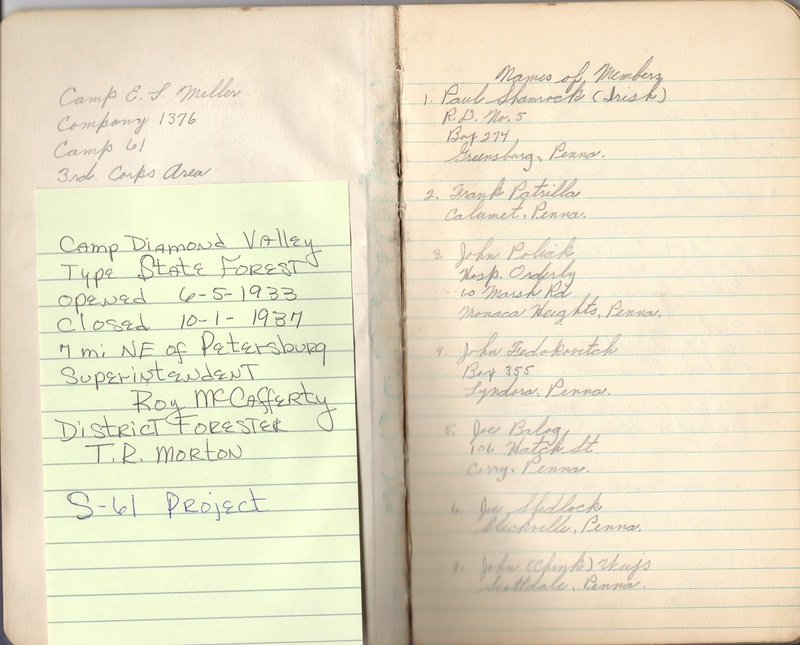 Camp E. L. Miller
Company 1376
Camp 61
3rd. Corps Area
Camp Diamond Valley
Type State Forest
Opened 6-5-1933
Closed 10-1-1937
7 mi NE of Petersburg
Superintendent
Roy McCafferty
District Forester
T.R. Morton
S-61 Project
Names of Members
1. Paul Shamrock (Irish)
R.D. No. 5
Box 274
Greensburg, Penna.
2. Frank Patrilla
Calumet, Penna.
3. John Poliak
Hosp. Orderly
10 Marsh Rd
Monaca Heights, Penna.
4. John Fedokovitch
Box 355
Lyndora, Penna.
5. Joe Balog
106 Hatch St.
Corry, Penna.
6. Joe
Slickville, Penna.
John (Chink)
Scottdale, Penna.